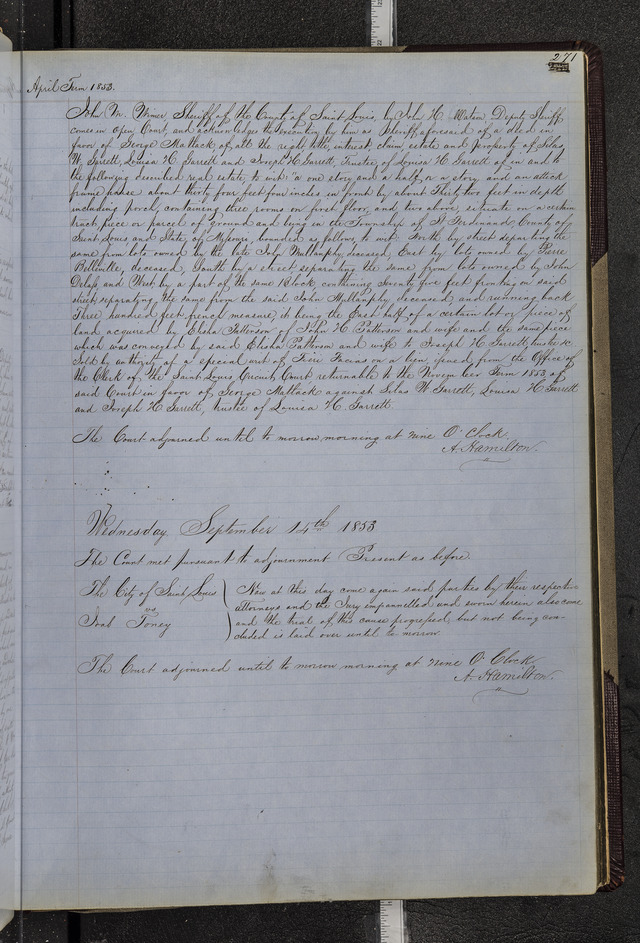 271
April Term 1853.
John M. Wimer, Sheriff of the County of Saint Louis, by John H. Watson, Deputy Sheriff
comes in open Court, and acknowledges the execution by him as Sheriff aforesaid of a deed in
favor of George Mattack of all the right, title, interest, claim, estate and property of Silas
W. Garrett, Louisa H. Garrett and Joseph H. Garrett, Trustee of Louisa H. Garrett of in and to
the following described real estate, to wit: a one story and a half, or a story and an attick
frame house about thirty four feet four inches in front by about Thirty two feet in depth
including porch, containing three rooms on first floor, and two above, situate on a certain
tract piece or parcel of ground and being in the Township of St Ferdinand, County of
Saint Louis and State of Missouri, bounded as follows, to wit: North by street separating the
same from lots owned by the late John Mullanphy, deceased, East by lots owned by Pierre
deceased, South by a street separating the same from lots owned by John
and West by a part of the same Block, containing Seventy five feet fronting on said
street, separating the same from the said John Mullanphy, deceased and running back
Three hundred feet french measure, it being the East half of a certain lot or piece of
land acquired by Elisha Patterson of John H. Patterson and wife and the same piece
which was conveyed by said Elisha Patterson and wife to Joseph H. Garrett, trustee &c
Sold by authority of a special writ of Fieri Facias on a lien, issued from the Office of
the Clerk of the Saint Louis Circuit Court returnable to the November Term 1853 of
said Court in favor of George Mattack against Silas W. Garrett, Louisa H. Garrett
and Joseph H. Garrett, trustee of Louisa H. Garrett.
The Court adjourned until to morrow morning at nine O'Clock.
A. Hamilton.
Wednesday September 14th 1853
The Court met pursuant to adjournment Present as before.
The City of Saint Louis
vs
Toney
Now at this day come again said parties by their respective
attorneys and the Jury impannelled and sworn herein also come
and the trial of this cause progressed, but not being con-
cluded is laid over until to morrow.
The Court adjourned until to morrow morning at nine O'Clock
A. Hamilton.